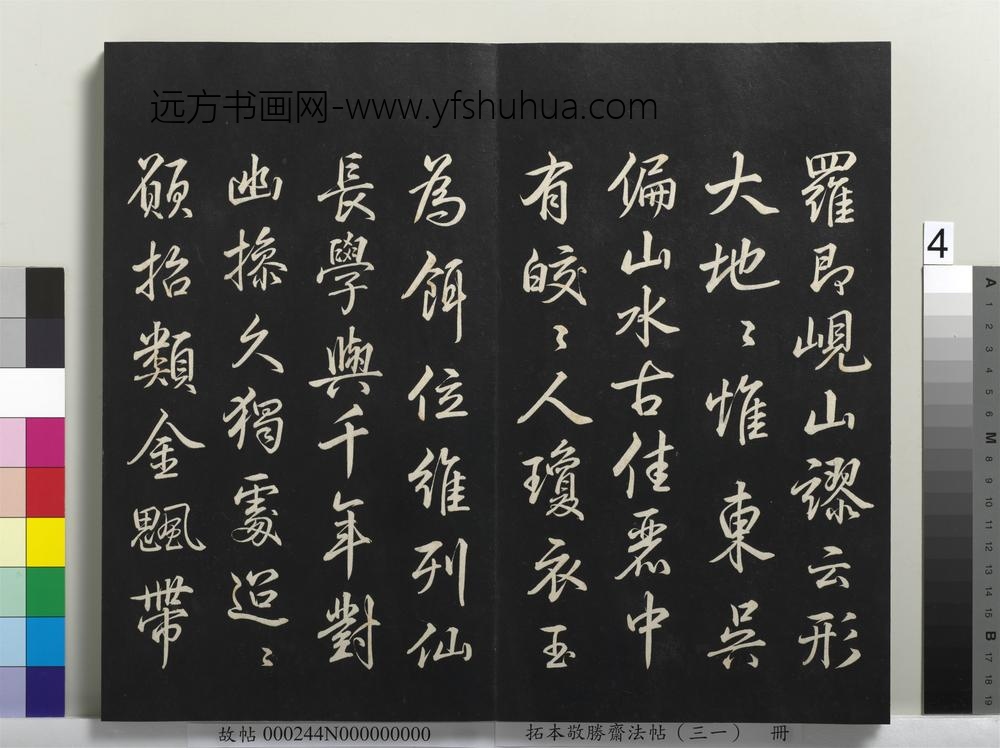 远方书画网-www.yfshuhua.com
羅即峴山謬云形
大地〻惟東吳
偏山水古佳麗中
有皎〻人瓊衣玉
為餌位維列仙
長學與千年對
幽操久獨處迢〻
願招類金颸帶
4
故帖 000244N000000000
拓本敬勝齋法帖（三一） 冊
A 1 2 3 4 5 6 M 8 9 10 11 12 13 14 15 B 17 18 19